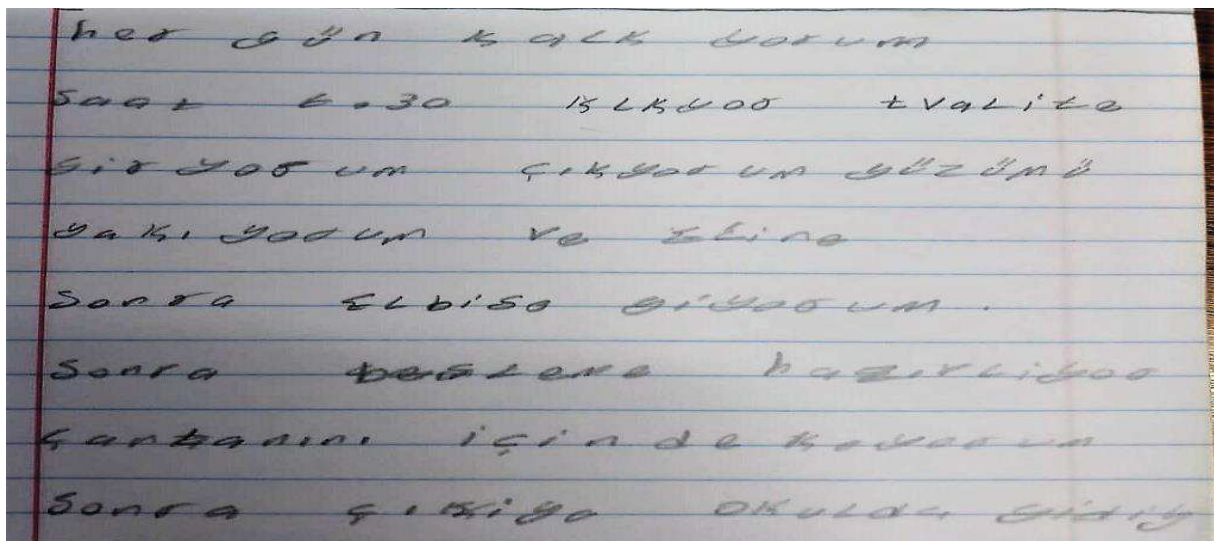 her gün kalk yorum
saat 6.30 klkyor tvalite
Gir yor um çıkyor um yüzümü
yakı yorum ve eline
Sonra Elbise giyor um.
Sonra beslene hazırliyor
çantanını için de koyor um
Sonra çıkiyo okulda gidiy